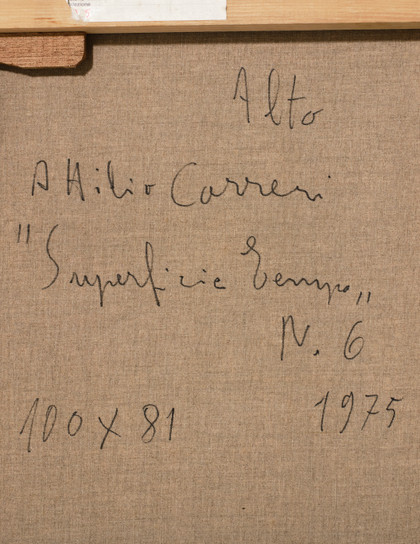 Alto
Attilio Carreri
"Superficie Tempo"
N. 6
100 x 81 1975